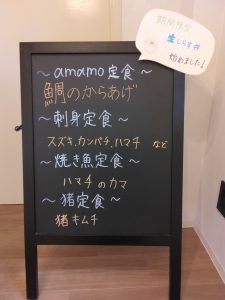 期間限定
生しらす丼
始めました！
～amamo定食～
鯛のからあげ
～刺身定食～
スズキ、カンパチ、ハマチ など
～焼き魚定食～
ハマチのカマ
～猪定食～
猪キムチ